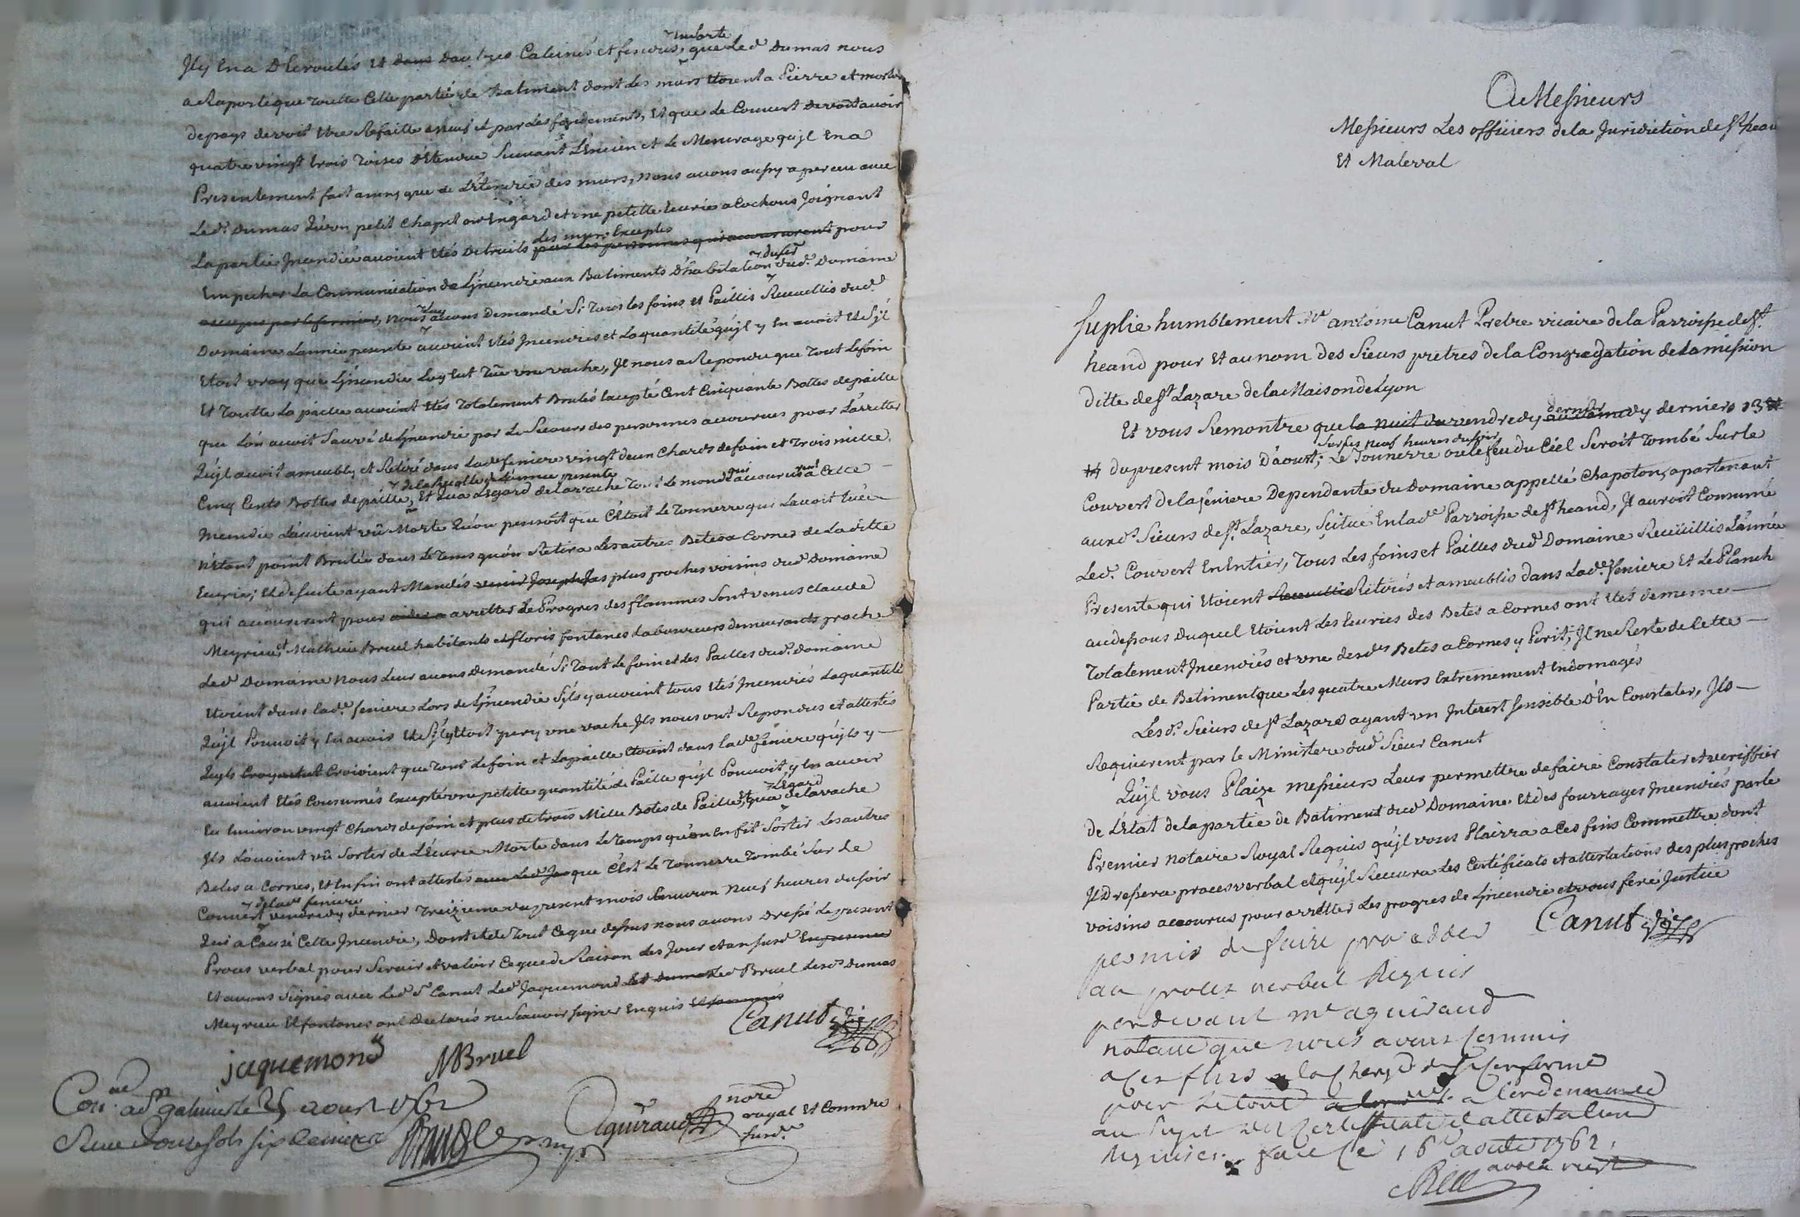 Jl y En a D'Ecroulés Et dans dautres Calcinés et fendus, que led. Dumas nous
a Raporté que Toutte Cette partie de Batiment dont Les murs Etoient a Pierre et mortier
de pays devoit Etre Refaitte a neuf et par Les fondements, Et que Le Couvert devoit avoir
quatre vingt trois Toises D'Etendue Suivant L'Encien et Le Mesurage qu'jl En a
Presentement fait ainsy que de L'Etendue des murs, nous avons aussy aperceu avec
Led. Dumas Qu'un petit Chapit ou Engard et une petitte Ecurie a Cochons Joignant
Les murs Exceptés
La partie Jncendiée avoient Etés Detruits par des personnes qui accoururent pour
Empecher La Communication de L'Jncendie aux Batiments D'habitation dud. Domaine
nous Luy avons demandé Si Tous les foins Et Paillis Recueillis dud.
Domaine L'année presente avoient Etés Jncendiés et La quantité qu'jl y En avoit Et S'jl
Etoit vray que L'Jncendie Luy Eut Tué une vache, Jl nous a Repondu que Tout Le foin
Et Toutte La paille avoient Etés Totalement Brulés Excepté Cent Cinquante Bottes de paille
que L'on avoit Sauvé de L'Jncendie par Le Secours des personnes accourues pour L'arretter
Qu'jl avoit ameubly et Retiré dans Lad. feniere vingt deux Chards de foin et Trois mille
de La Recolte de L'année presente
Cinq Cents Bottes de paille, Et qu'a L'Egard de La vache Tout Le monde qui accourut a Cet
Jncendie L'avoient vû Morte Qu'on pensoit que C'Etoit Le Tonnerre qui L'avoit Tuée
N'Etant point Brulée dans Le Tems qu'on Retira Les autres Betes a Cornes de La ditte
Ecurie; Et de suite ayant Mandés venir Les plus proches voisins dud. Domaine
qui accoururent pour arretter Le Progres des flammes Sont venus Claude
Meyrieu, Mathieu Bruel habitants et floris fontanes Laboureurs demeurants proche
Led. Domaine nous Leur avons demandé Si Tout Le foin et Les Pailles dud. domaine
Etoient dans Lad. feniere Lors de L'Jncendie S'ils y avoient tous Etés Jncendiés La quantité
Qu'jl Pouvoit y En avoir Et S'jl y Etoit pery une vache Jls nous ont Repondus et attestés
Qu'jls Croyoient que Tout Le foin et La paille Etoient dans Lad. feniere qu'jls y
avoient Etés Consumés Excepté une petitte quantité de Paille qu'jl Pouvoit y En avoir
En Environ vingt Chards de foin et plus de trois Mille Botes de Paille, Et qu'a L'Egard de La vache
Jls L'avoient vû Sortir de L'Ecurie Morte dans Le Temps qu'on En fit Sortir Les autres
Betes a Cornes, Et Enfin ont attestés que C'Est Le Tonnerre Tombé Sur Le
de Lad. feniere
Couvert vendredy dernier Treizieme du present mois Environ neuf heures du soir
Qui a Causé Cette Jncendie, Dont et de Tout Ce que dessus nous avons Dressé Le present
Proces verbal pour Servir et valoir Ce que de Raison Les Jour et an susd.
Et avons Signés avec Led. Sr. Canut Led. Jaquemond Led. Bruel Lesd. Dumas
Meyrieu Et fontanes ont Declarés ne Scavoir Signer Enquis
Canut
jaquemond
MBruel
Aguiraud
nore.
royal et Commre
susd.
Con. ad. galmier le 25 aoust 1762
Reçu douze sols six deniers
A Messieurs
Messieurs Les officiers de La Juridiction de St. heand
Et Maleval
Suplie humblement Me. antoine Canut Pretre vicaire de La Parroisse de St.
heand pour Et au nom des Sieurs pretres de La Congregation de La mission
Ditte de St. Lazare de La Maison de Lyon
Et vous Remontre que La nuit du vendredy dernier 13
Sur Les neuf heures du soir
du present mois D'aoust; Le Tonnerre ou Le feu du Ciel Seroit Tombé Sur Le
Couvert de La feniere Dependante du Domaine appellé Chapoton, apartenant
auxd. Sieurs de St. Lazare, Scitué En Lad. Parroisse de St. heand, Jl auroit Consumé
Led. Couvert En Entier, Tous Les foins et Pailles dud. Domaine Recüeillis L'année
Presente qui Etoient Retirés et ameublis dans Lad. feniere Et Le Planch
au dessous duquel Etoient Les Ecuries des Betes a Cornes ont Etés de meme
Totalement Jncendiés et une desd. Betes a Cornes y Perit, Jl ne Reste de Cette
Partie de Batiment que Les quatre Murs Extremement Endomagés
Lesd. Sieurs de St. Lazare ayant un Interest sensible D'En Constater, Jls
Requierent par le Ministere dud. Sieur Canut
Qu'jl vous Plaize messieurs Leur permettre de faire Constater et veriffier
de L'Etat de La partie de Bâtiment dud. Domaine Et des fourrages Jncendiés par le
Premier Notaire Royal Requis qu'jl vous Plairra a Ces fins Commettre dont
Jl Dressera proces verbal et qu'jl Recevra Les Certificats et attestations des plus proches
voisins accourus pour arretter Les progres de L'Jncendie et vous feré Justice
Canut
permis de faire proceder
au proces verbal Requis
pardevant me. aguiraud
notaire que nous avons Commis
a Ces fins a la Charge de se Conformer
pour Le tout a L'ordonnance
au sujet des Certifficats et attestations
Requises. fait Ce 16e. aoust 1762.